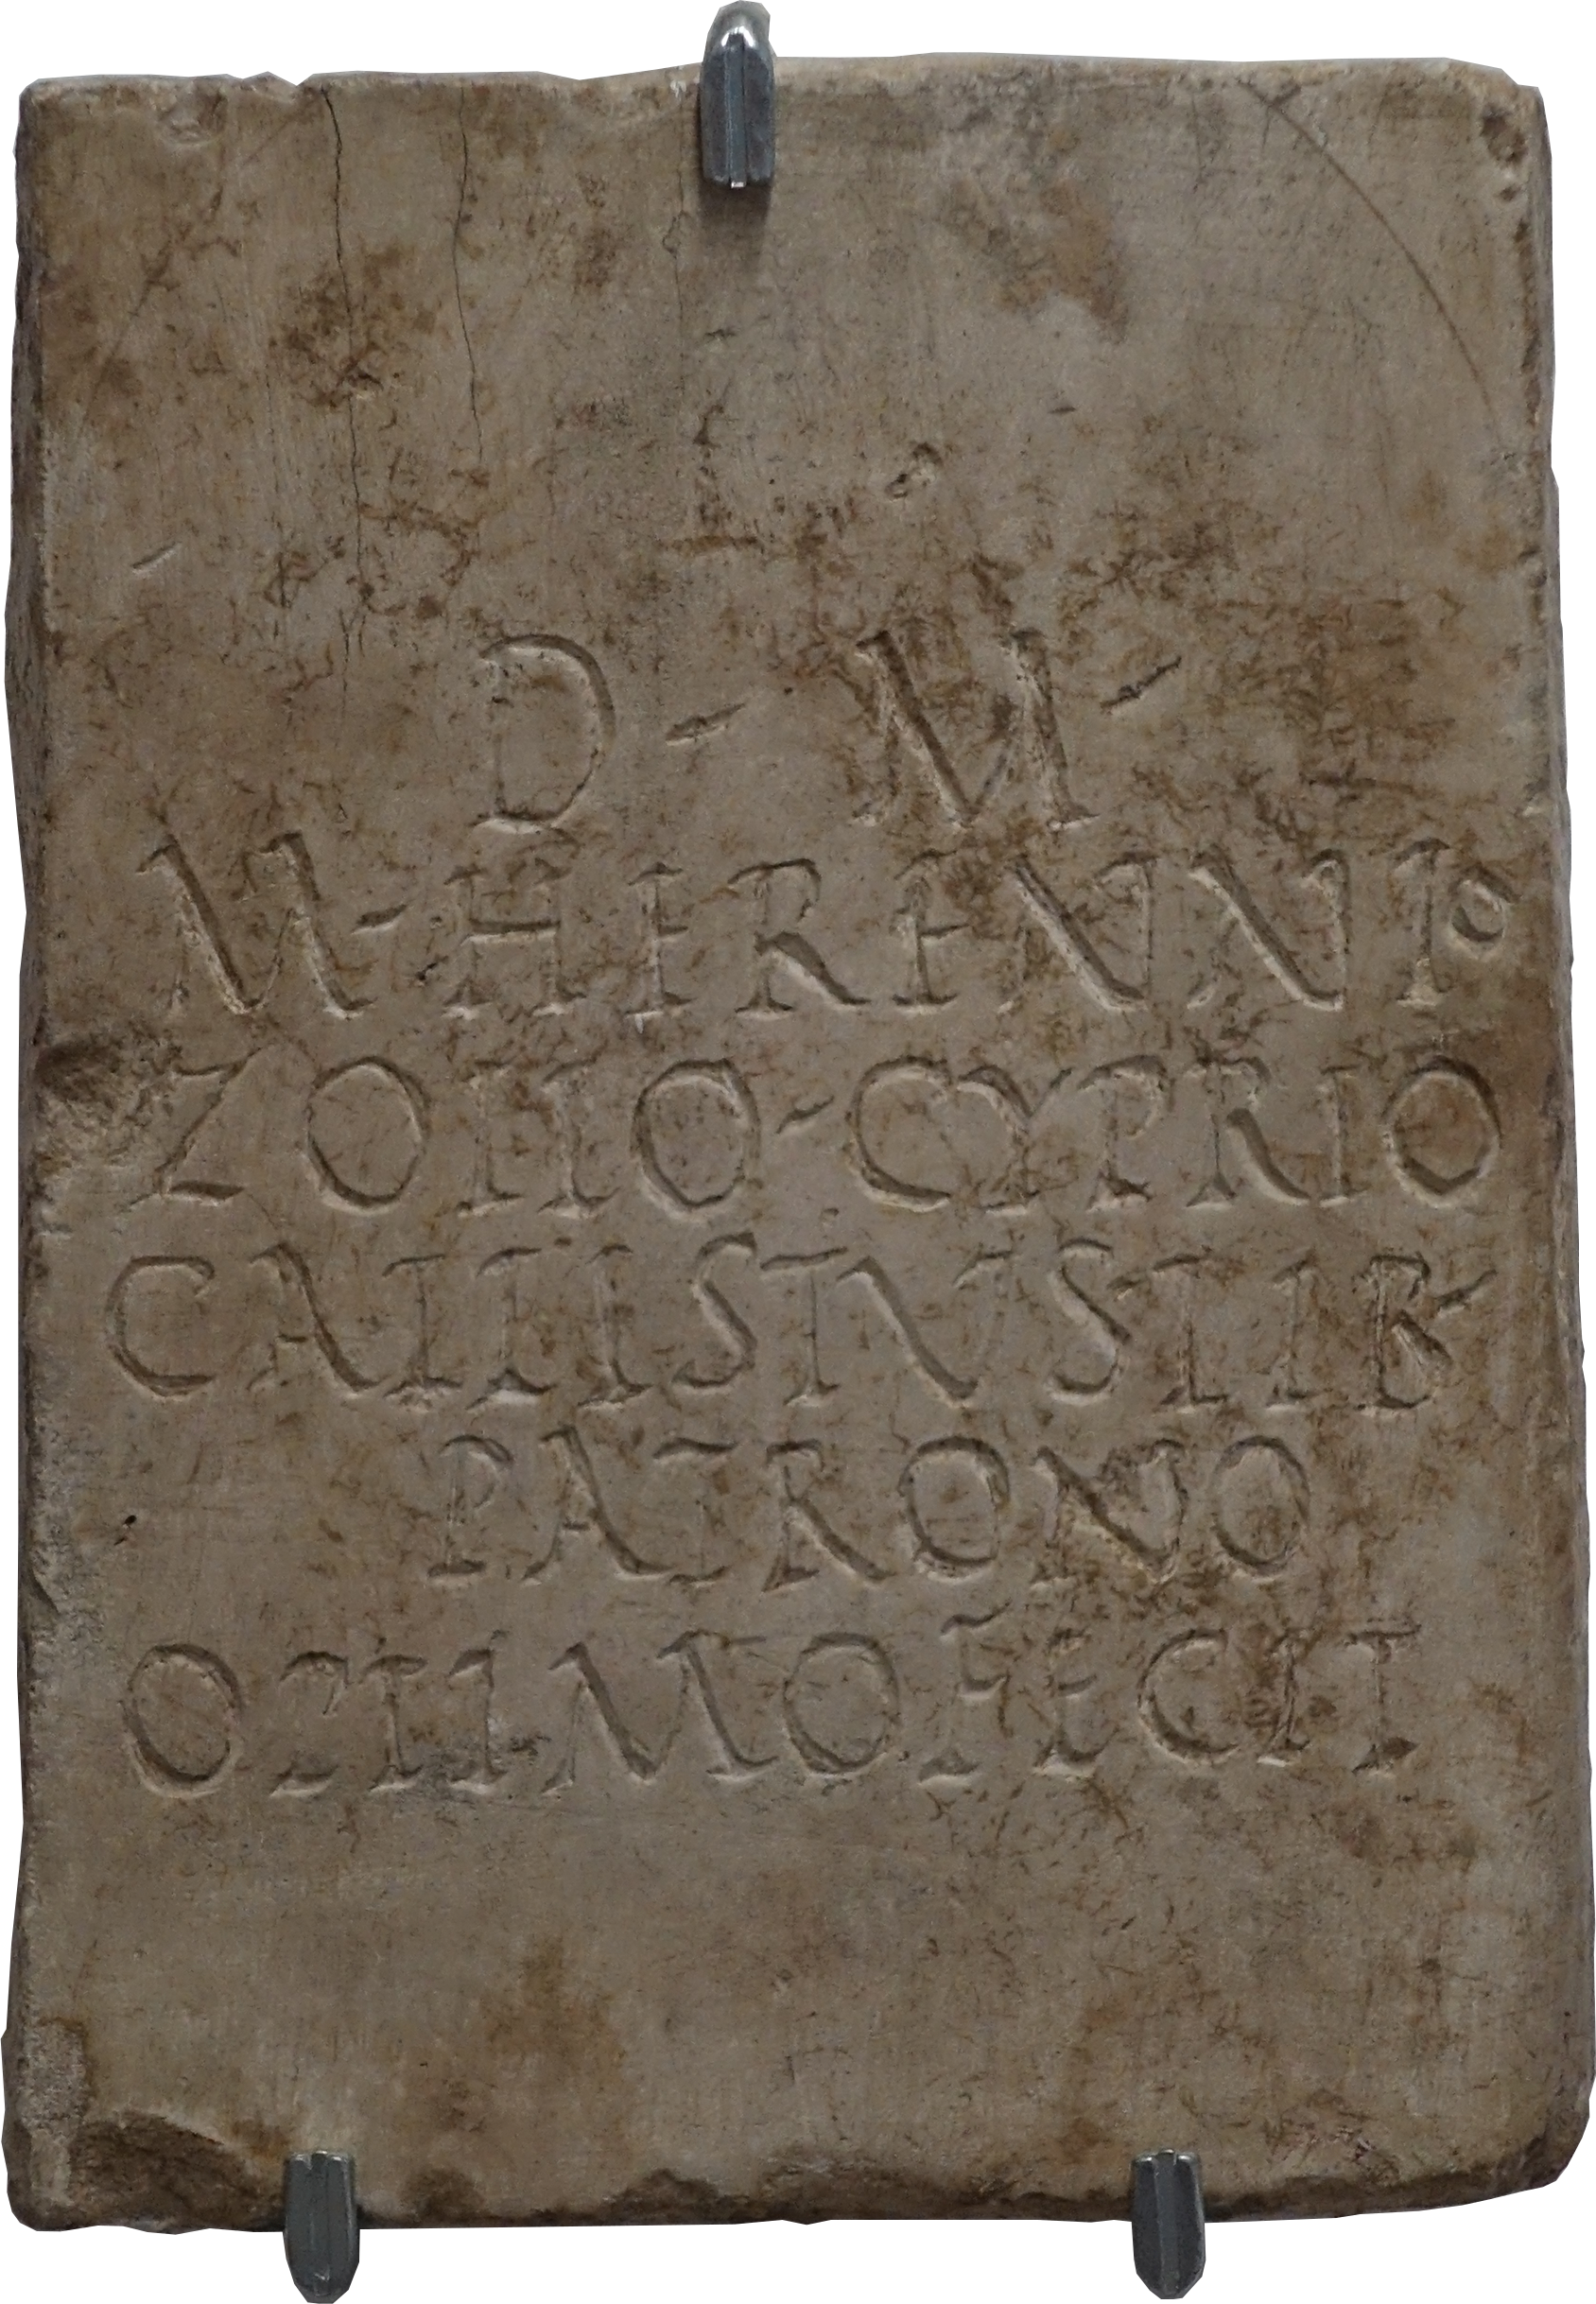 D · M ·
M · HERENNIO
ZOILO · CYPRIO
CALLISTVS LIB ·
PATRONO
OPTIMO FECIT